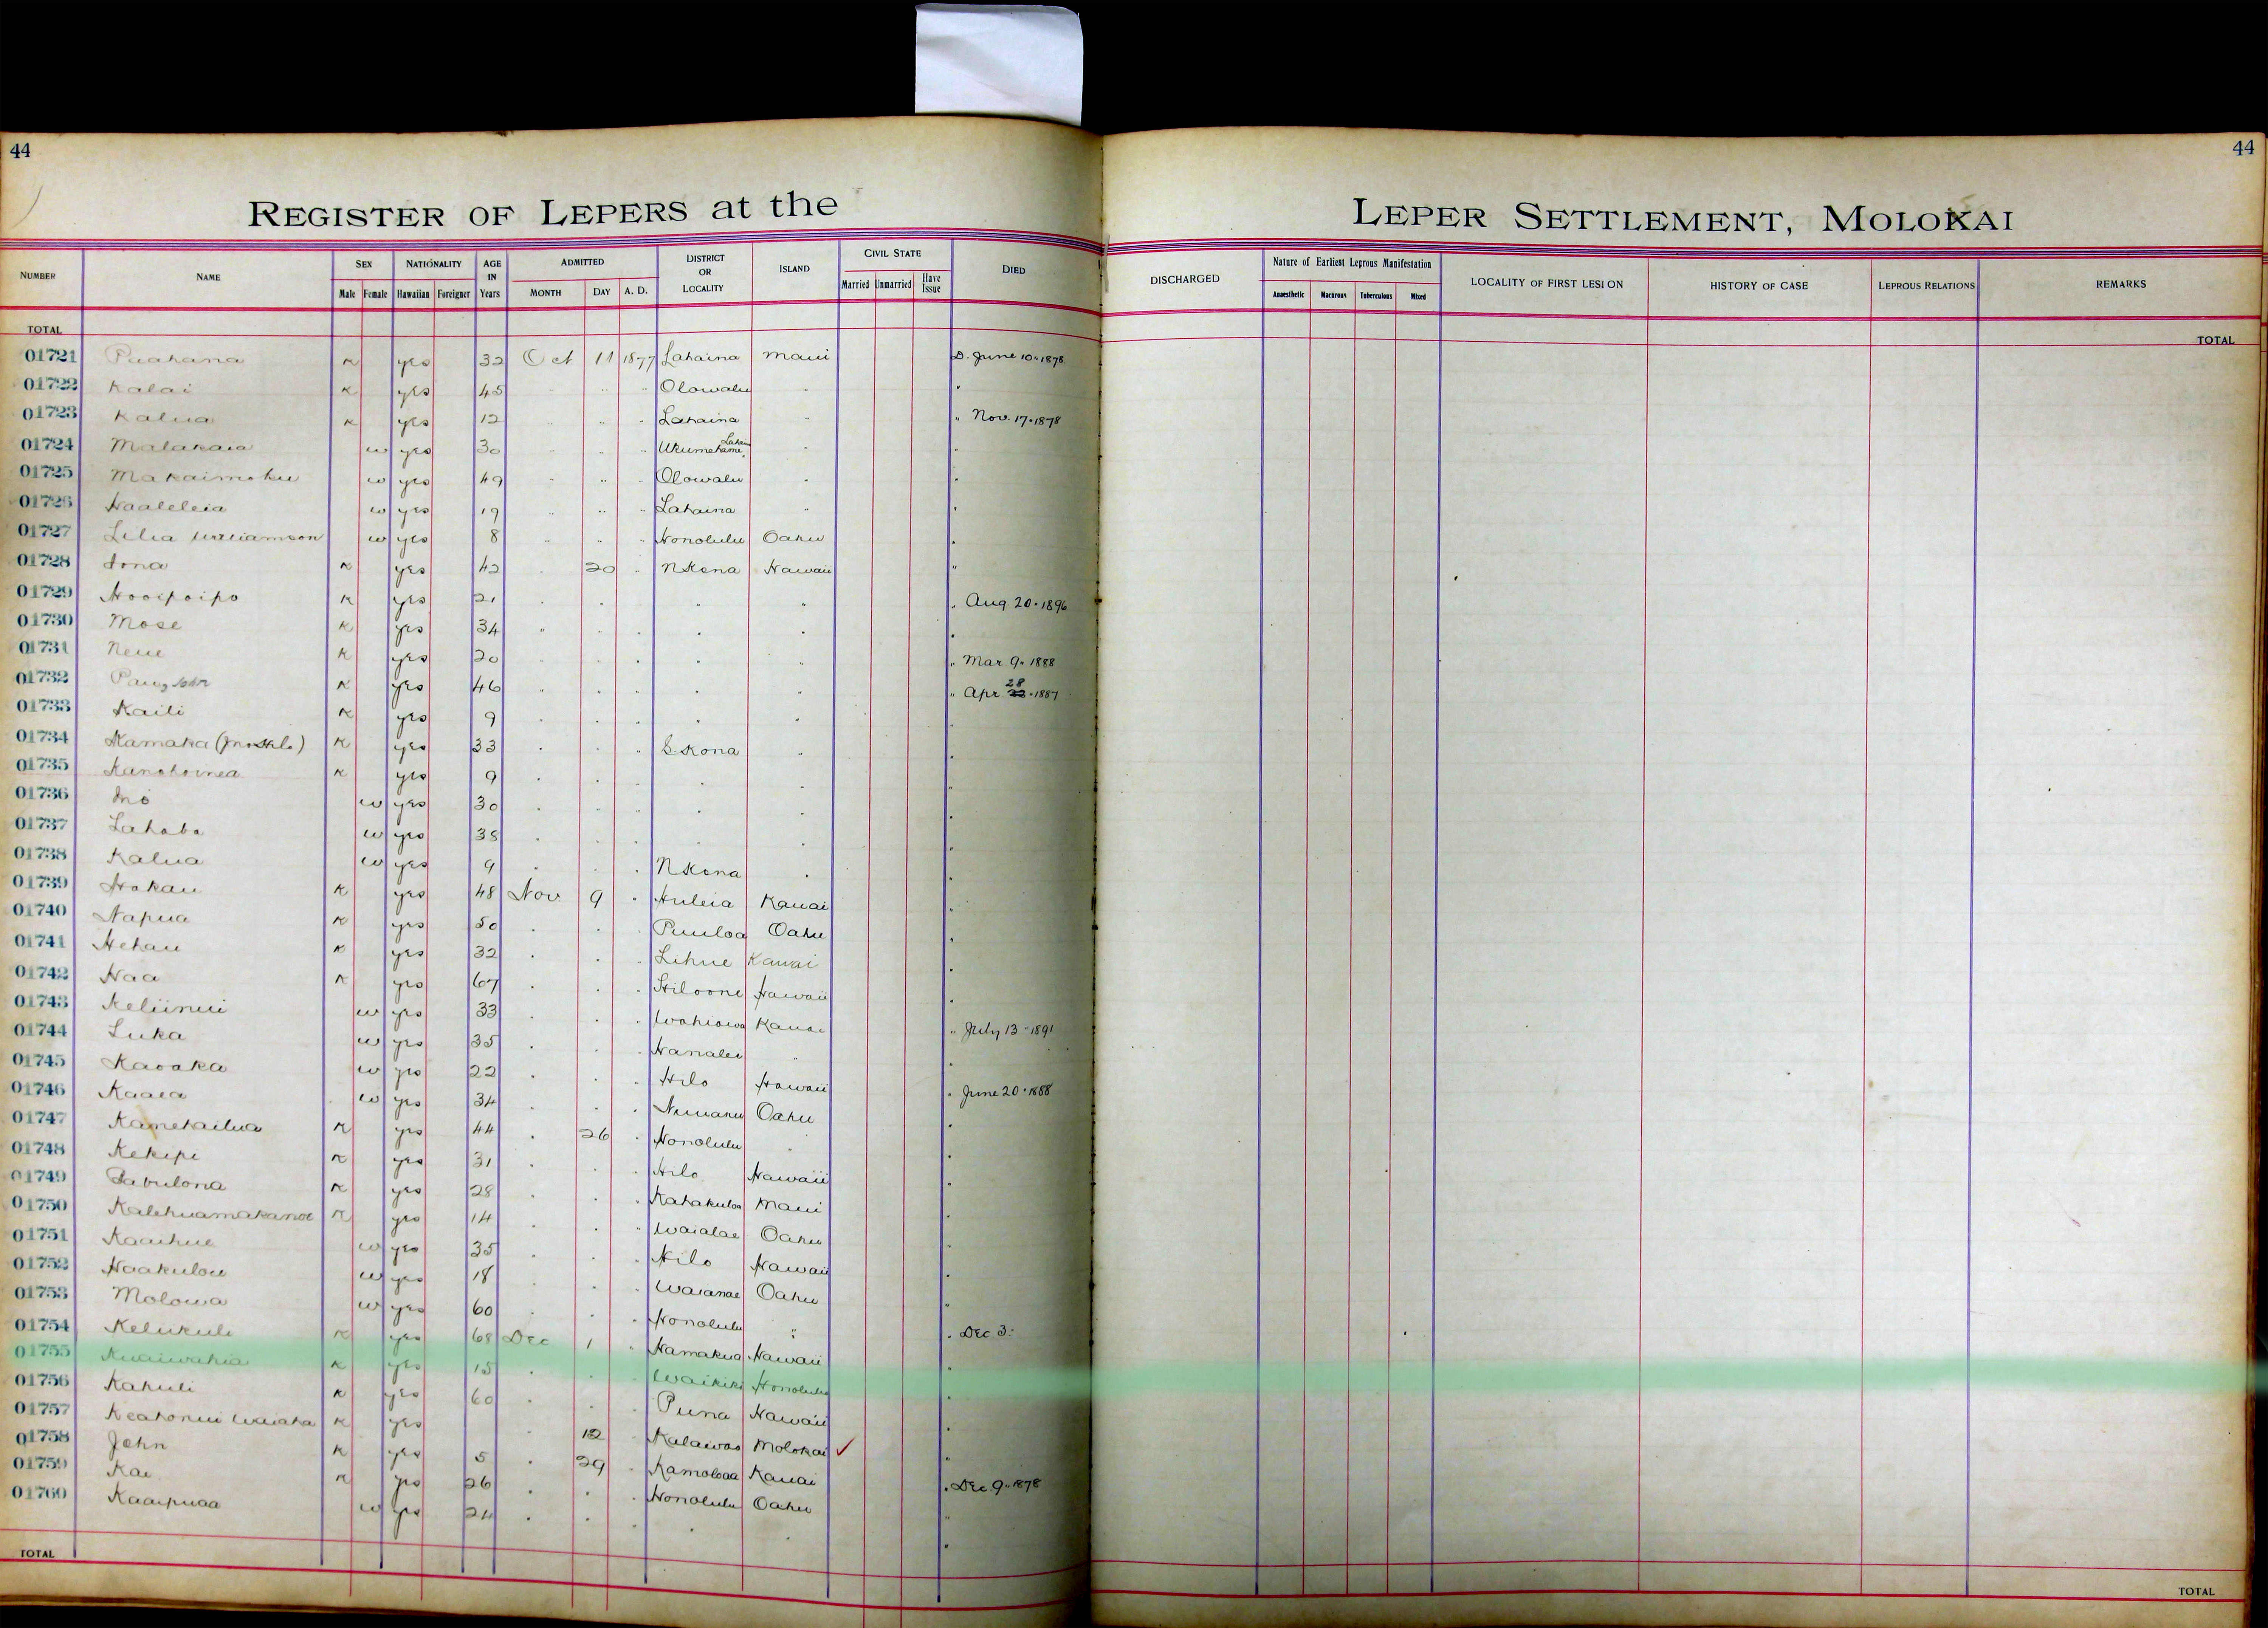 44
44
REGISTER OF LEPERS at the LEPER SETTLEMENT, MOLOKAI
NUMBER NAME SEX NATIONALITY AGE IN Years ADMITTED DISTRICT OR LOCALITY ISLAND CIVIL STATE DIED DISCHARGED Nature of Earliest Leprous Manifestation LOCALITY OF FIRST LESION HISTORY OF CASE LEPROUS RELATIONS REMARKS
Male Female Hawaiian Foreigner MONTH DAY A. D. Married Unmarried Have Issue Anaesthetic Macurous Tuberculous Mixed
TOTAL TOTAL
01721 Puahana K yes 32 Oct 11 1877 Lahaina Maui D. June 10 " 1878
01722 Kalai K yes 45 " " " Olowalu " "
01723 Kalua K yes 12 " " " Lahaina " " Nov. 17 " 1878
01724 Malakaia w yes 30 " " " Ukumehame " "
01725 Makaimoku w yes 49 " " " Olowalu " "
01726 Haaleleia w yes 19 " " " Lahaina " "
01727 Lilia Williamson w yes 8 " " " Honolulu Oahu "
01728 Iona K yes 42 " 20 " N Kona Hawaii "
01729 Hooipoipo K yes 21 " " " " " Aug. 20 " 1896
01730 Mose K yes 34 " " " " " "
01731 Neue K yes 20 " " " " " Mar. 9 " 1888
01732 K yes 46 " " " " " Apr 28 " 1887
01733 Kaili K yes 9 " " " " " "
01734 Kamaka K yes 33 " " " S. Kona " "
01735 K yes 9 " " " " " "
01736 w yes 30 " " " " " "
01737 w yes 38 " " " " " "
01738 Kalua w yes 9 " " " N Kona " "
01739 Hokau K yes 48 Nov 9 " Huleia Kauai "
01740 Napua K yes 50 " " " Puuloa Oahu "
01741 Hehau K yes 32 " " " Lihue Kauai "
01742 Naa K yes 67 " " " Hiloone Hawaii "
01743 Keliinui w yes 33 " " " Wahiawa Kauai " July 13 " 1891
01744 Luka w yes 35 " " " Hanalei " "
01745 Kaoaka w yes 22 " " " Hilo Hawaii " June 20 " 1888
01746 Kaaea w yes 34 " " " Nuuanu Oahu "
01747 Kamehailua K yes 44 " 26 " Honolulu " "
01748 Kekipi K yes 31 " " " Hilo Hawaii "
01749 Zabulona K yes 28 " " " Kahakuloa Maui "
01750 Kalehuamakanoe K yes 14 " " " Waialae Oahu "
01751 Kaaihue w yes 35 " " " Hilo Hawaii "
01752 Haakulou w yes 18 " " " Waianae Oahu "
01753 Molowa w yes 60 " " " Honolulu " " Dec 3.
01754 Kelikuli K yes 68 Dec 1 " Hamakua Hawaii "
01755 Kuaiwahia K yes 15 " " " Waikiki Honolulu "
01756 Kahuli K yes 60 " " " Puna Hawaii "
01757 Keahonui Waiaha K yes " 12 Kalawao Molokai ✓ "
01758 John K yes 5 " 29 " Kamoloaa Kauai " Dec 9 " 1878
01759 Kai K yes 26 " " " Honolulu Oahu "
01760 Kaaipuaa w yes 24 " " " " " "
TOTAL TOTAL